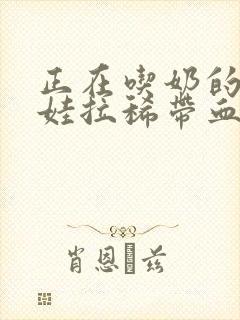 正在喫奶的
娃拉稀帶血
肖恩�兹